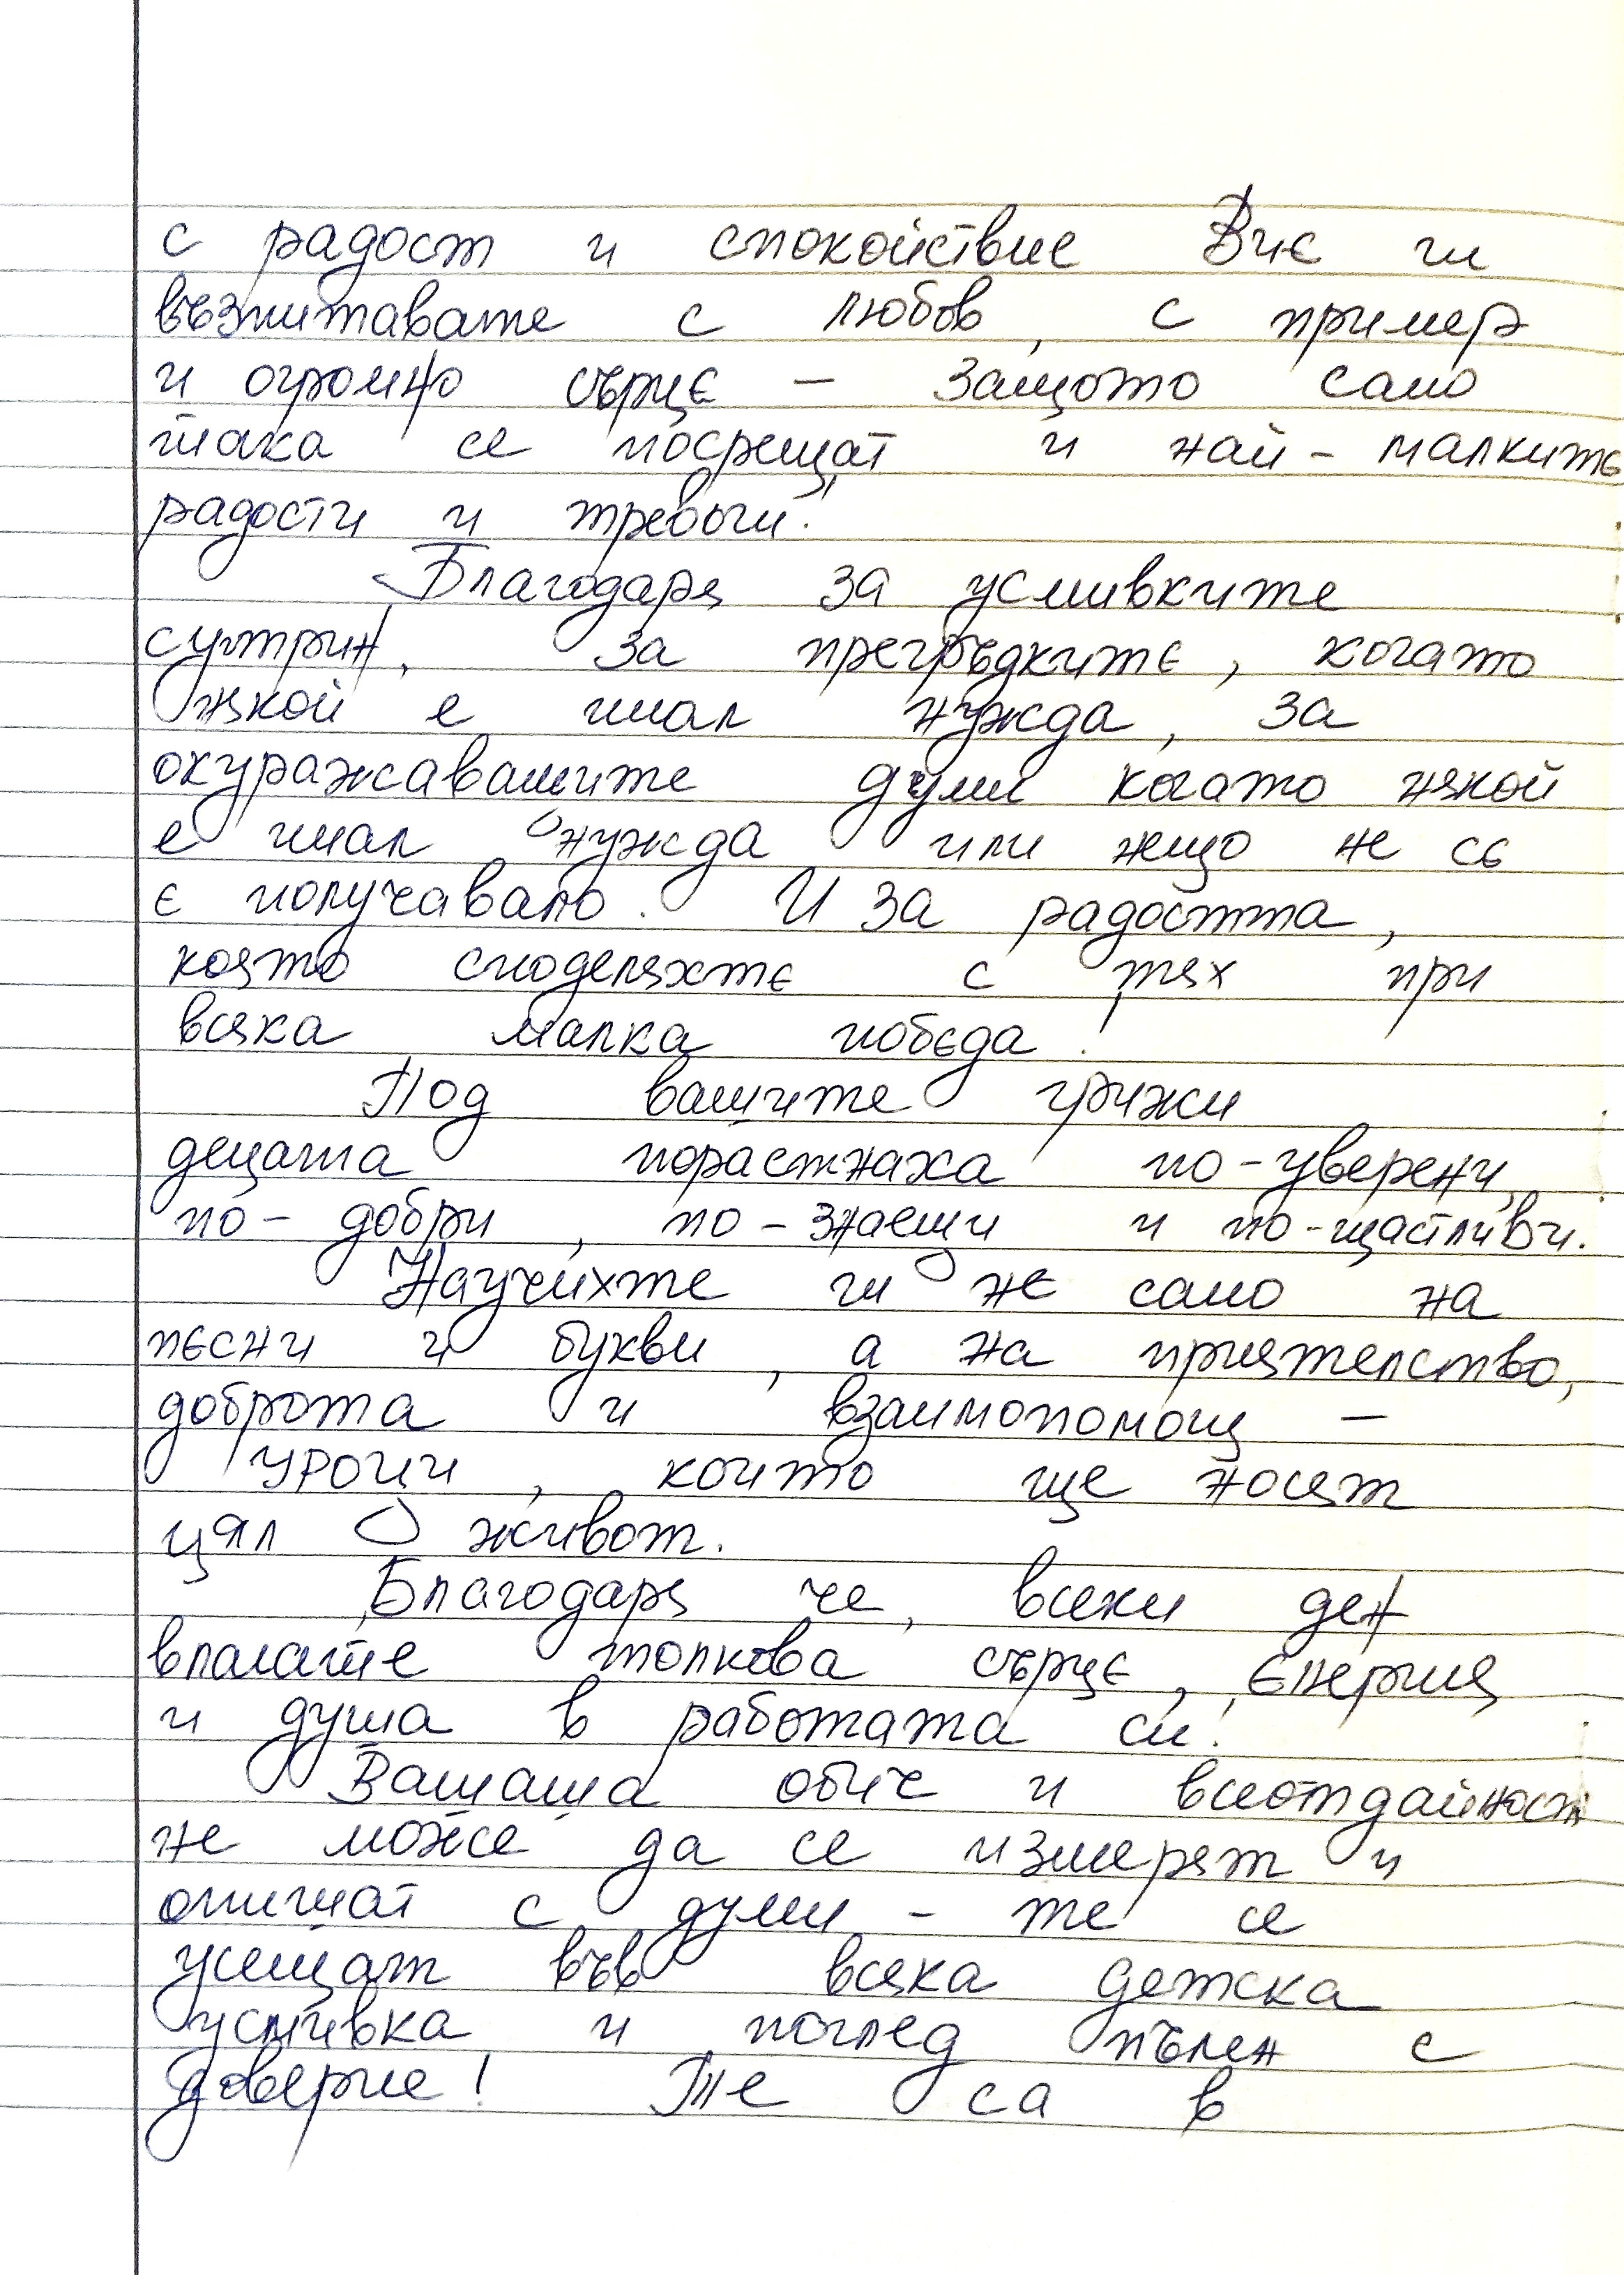 с радост и спокойствие Вие ги
възпитавате с любов, с пример
и огромно сърце – защото само
така се посрещат и най-малките
радости и тревоги!
Благодаря за усмивките
сутрин, за прегръдките, когато
някой е имал нужда, за
окуражаващите думи когато някой
е имал нужда или нещо не се
е получавало. И за радостта,
която споделяхте с тях при
всяка малка победа!
Под вашите грижи
децата пораснаха по-уверени,
по-добри, по-знаещи и по-щастливи.
Научихте ги не само на
песни и букви, а на приятелство,
доброта и взаимопомощ –
уроци, които ще носят
цял живот.
Благодаря че, всеки ден
влагате толкова сърце, енергия
и душа в работата си!
Вашата обич и всеотдайност
не може да се измерят и
опишат с думи – те се
усещат във всяка детска
усмивка и поглед пълен с
доверие! Те са в